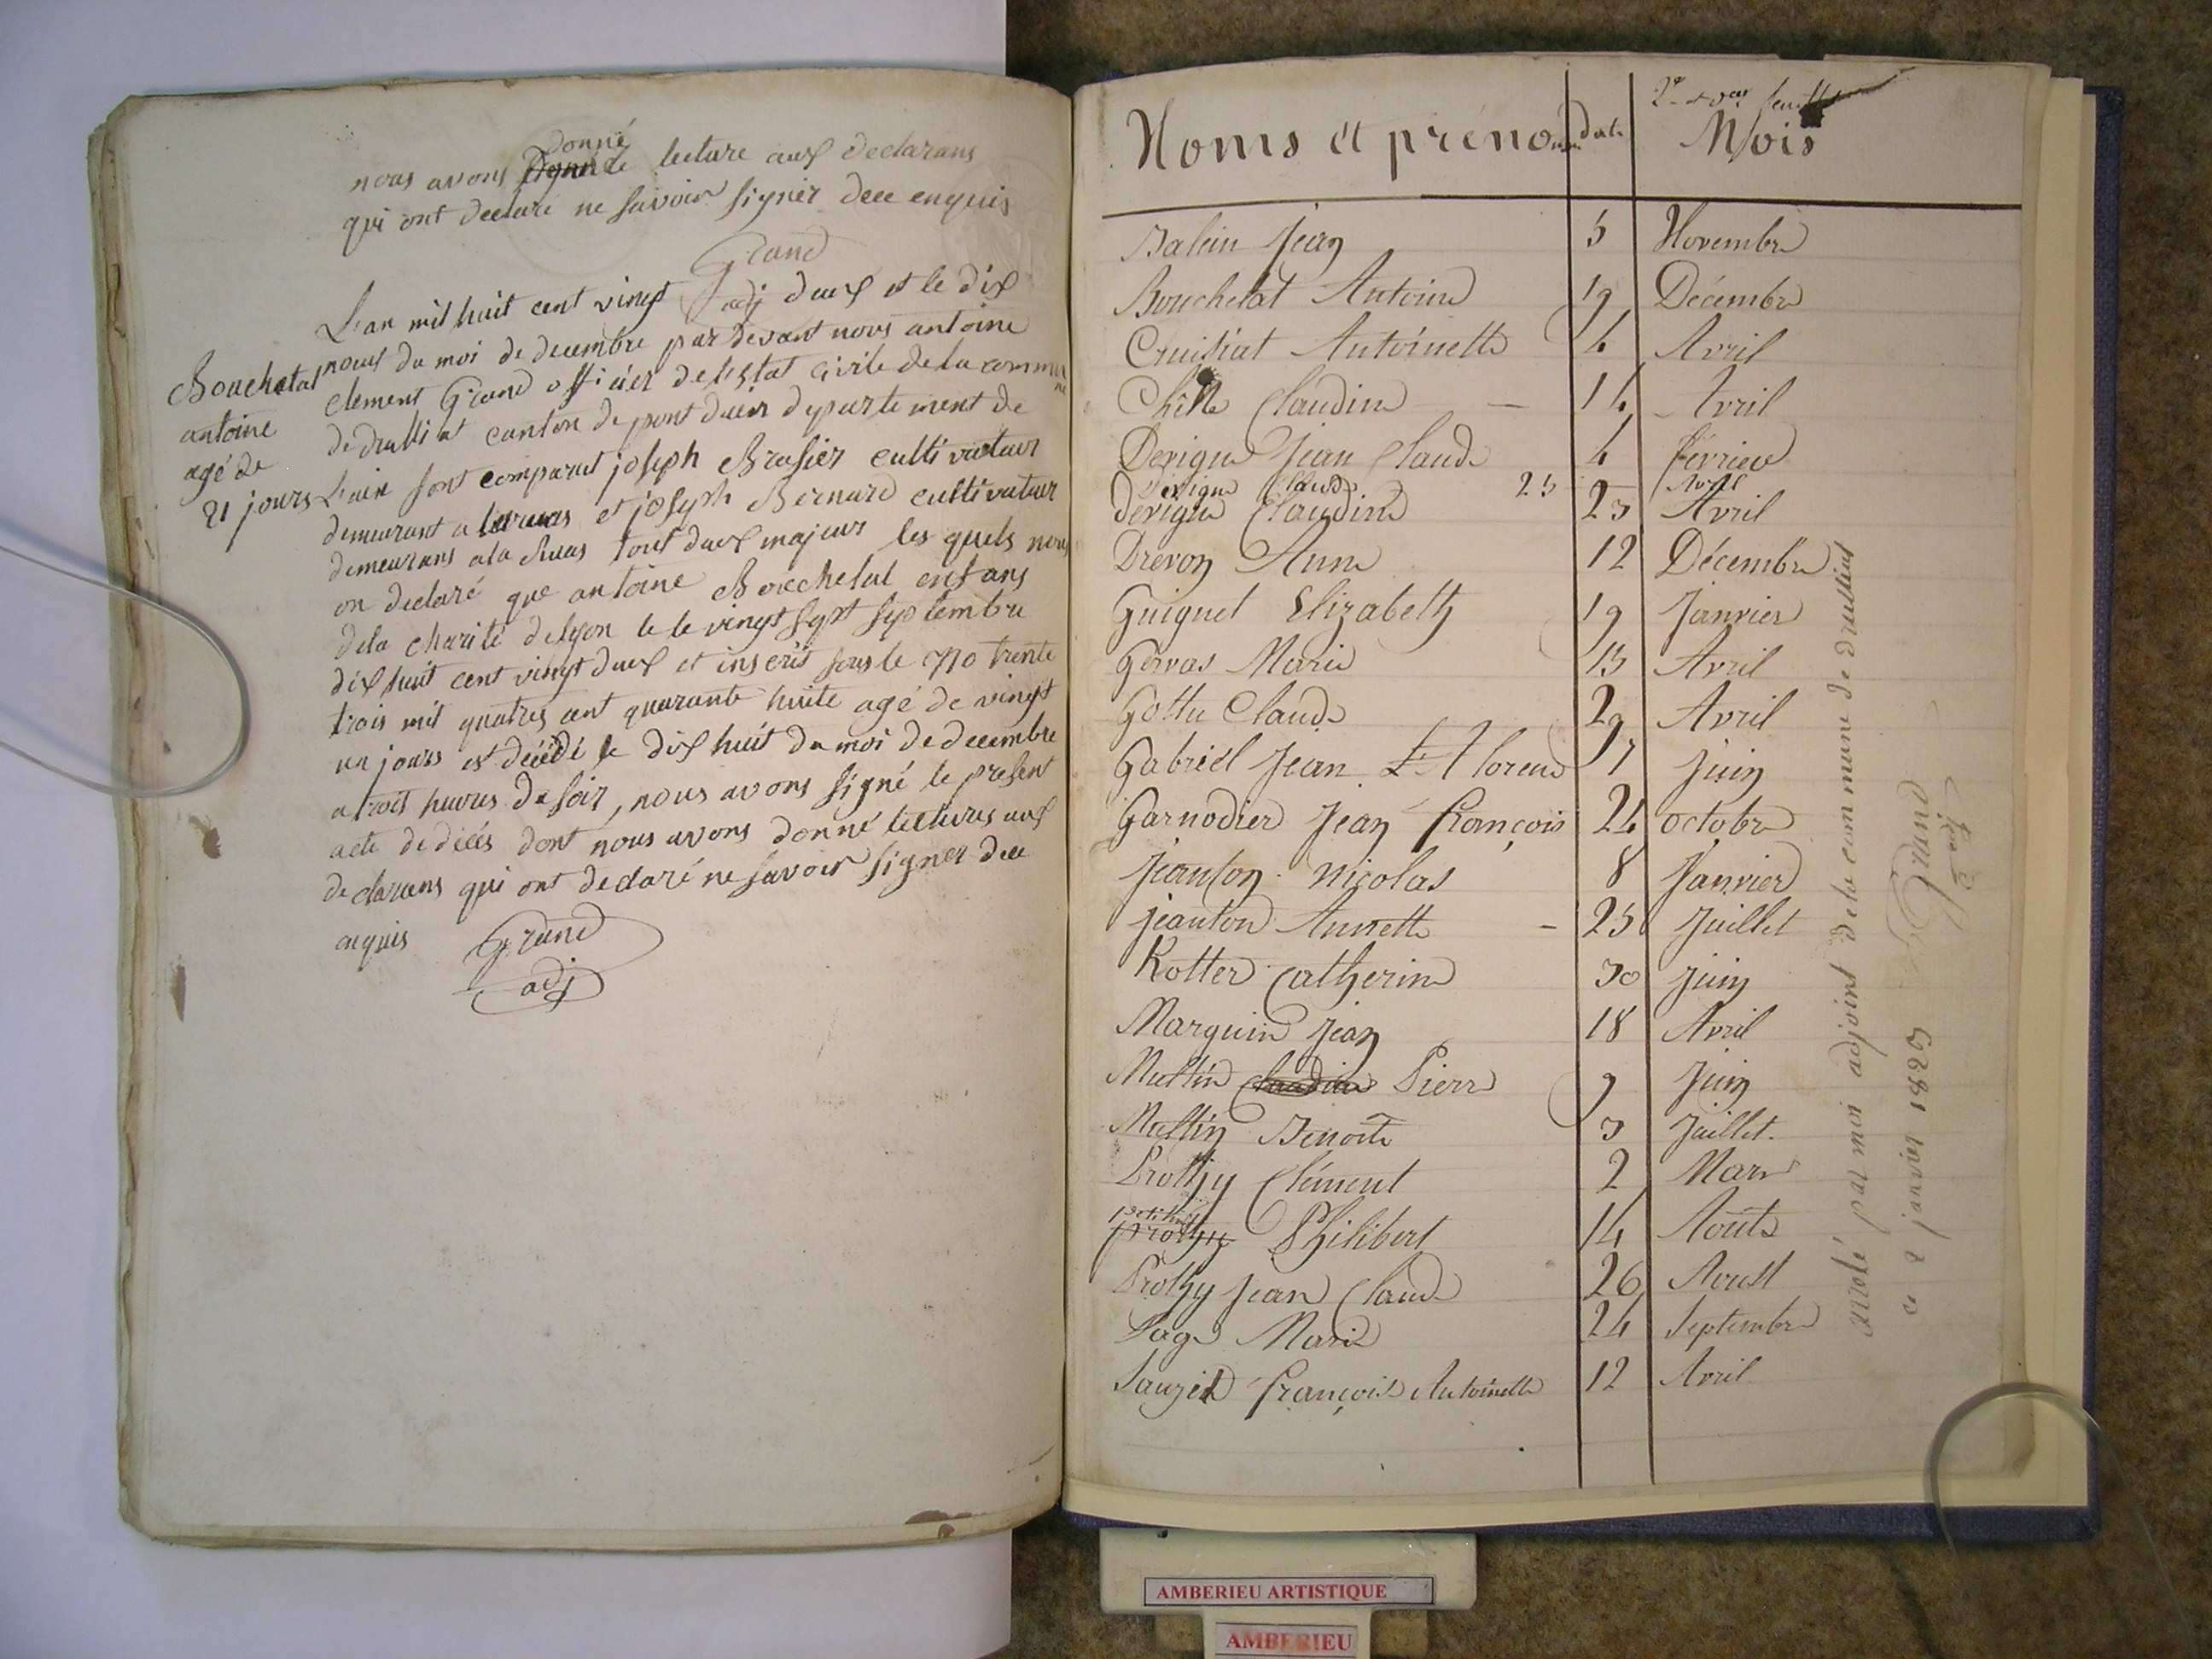 nous avons donné lecture aux declarans
qui ont declare ne savoir signer dece enquis
Grand
adj
L'an mil huit cent vingt deux et le dix
neuf du moi de decembre par devant nous antoine
clement Grand officier de l'estat civile de la commune
de druillat canton de pont dain departement de
L'ain sont comparut joseph Brasier cultivateur
demeurant a et joseph Bernard cultivateur
demeurans a la tout deux majeurs les quels nous
on declaré que antoine Bouchetal enfans
de la charité de lyon le le vingt sept septembre
dix huit cent vingt deux et inscrit sous le no trente
trois mil quatres cent quarante huite agé de vingt
un jours est décédé le dix huit du moi de decembre
a trois heures du soir, nous avons signé le present
acte de décés dont nous avons donné lectures aux
declarans qui ont declaré ne savoir signer dece
enquis
Grand
adj
Bouchetal
antoine
agé de
21 jours
2e et feuille
Noms et prénoms date Mois
Balein Jean 5 Novembre
Bouchetat Antoine 19 Décembre
Cruisiat Antoinette 4 Avril
Claudine 14 Avril
Derigue Jean Claude 4 février
Derigue Claude 25 Avril
derigue Claudine 23 Avril
Drevon Anne 12 Décembre
Guignet Elizabeth 19 Janvier
Gervas Marie 13 Avril
Gottu Claude 29 Avril
Gabriel Jean Florend 7 Juin
Garnodier Jean François 24 octobre
Jeanton Nicolas 8 Janvier
jeanton Annette - 25 Juillet
Kotter Catherine 30 Juin
Marguin Jean 18 Avril
Muttin Claudine Pierre 9 Juin
Muttin Benoite 3 Juillet.
Prothy Clément 2 Mars
prothy Philibert 14 Aoûts
Prothy Jean Claude 26 Aoust
Page Marie 24 Septembre
Sauzet François Antoinette 12 Avril
Arreté par moi adjoint de la commune de druilliat
ce 2 janvier 1823
Grand
adj
AMBERIEU ARTISTIQUE
AMBERIEU